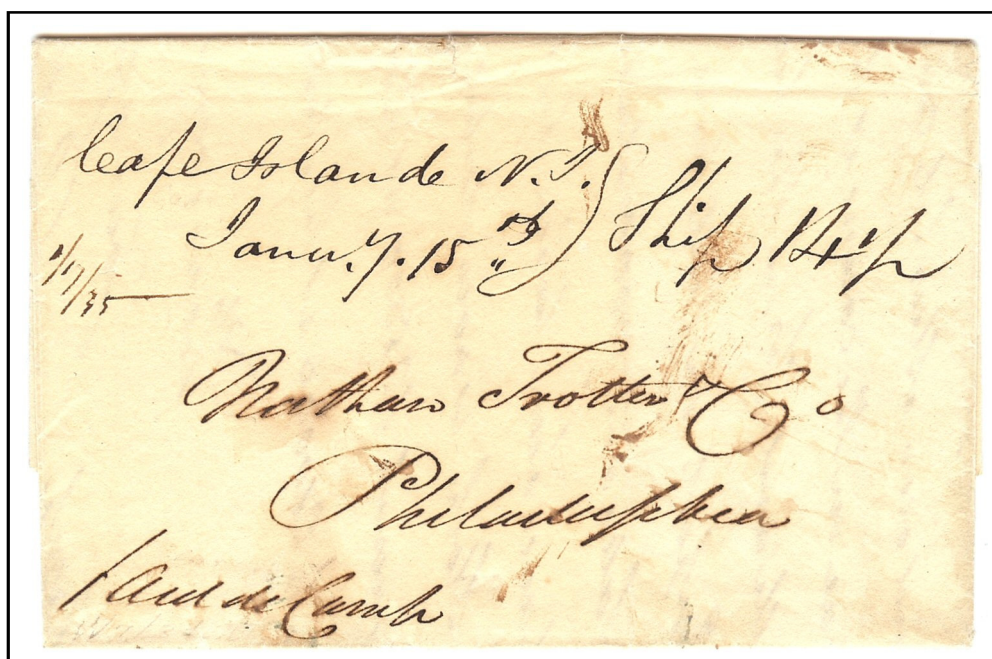 Cape Islande N.J.
Janu.y. 15th } Ship 14½
1/7/35
Nathan Trotter & Co
Philadelphia
/ Aid de Camp